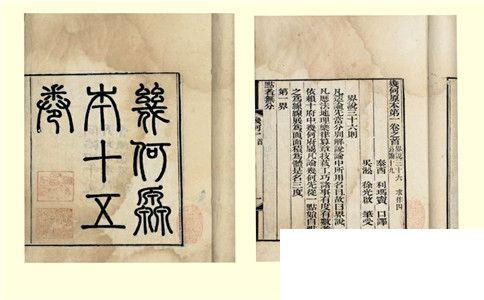 幾何原
本十五
卷
幾何原本第一卷之首 界說三十六 求作四
公論十九
泰西 利瑪竇 口譯
吳淞 徐光啟 筆受
界說三十六則
凡造論先當分別解說論中所用名目故曰界說
凡歷法地理樂律算章技藝工巧諸事有度有數者
依賴十府中幾何府屬凡論幾何先從一點始自點
之為線線展為面面積為體是名三度
第一界
點者無分